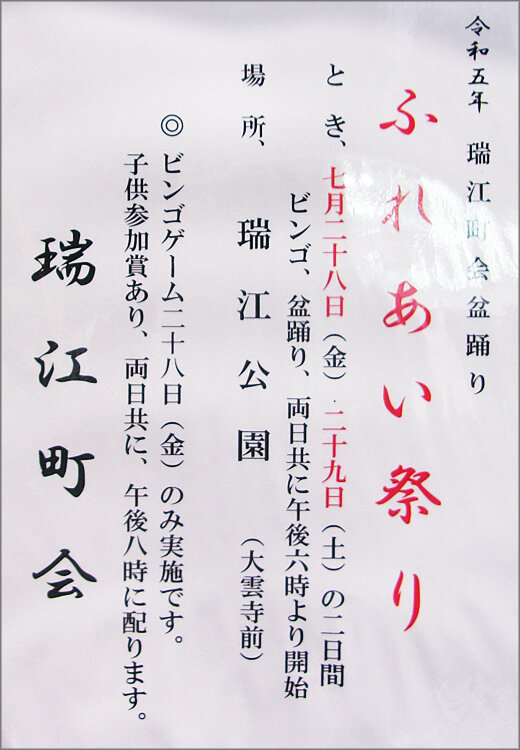 令和五年 瑞江町会盆踊り
ふれあい祭り
とき、七月二十八日（金）・二十九日（土）の二日間
ビンゴ、盆踊り、両日共に午後六時より開始
場所、瑞江公園（大雲寺前）
◎ビンゴゲーム二十八日（金）のみ実施です。
子供参加賞あり、両日共に、午後八時に配ります。
瑞江町会